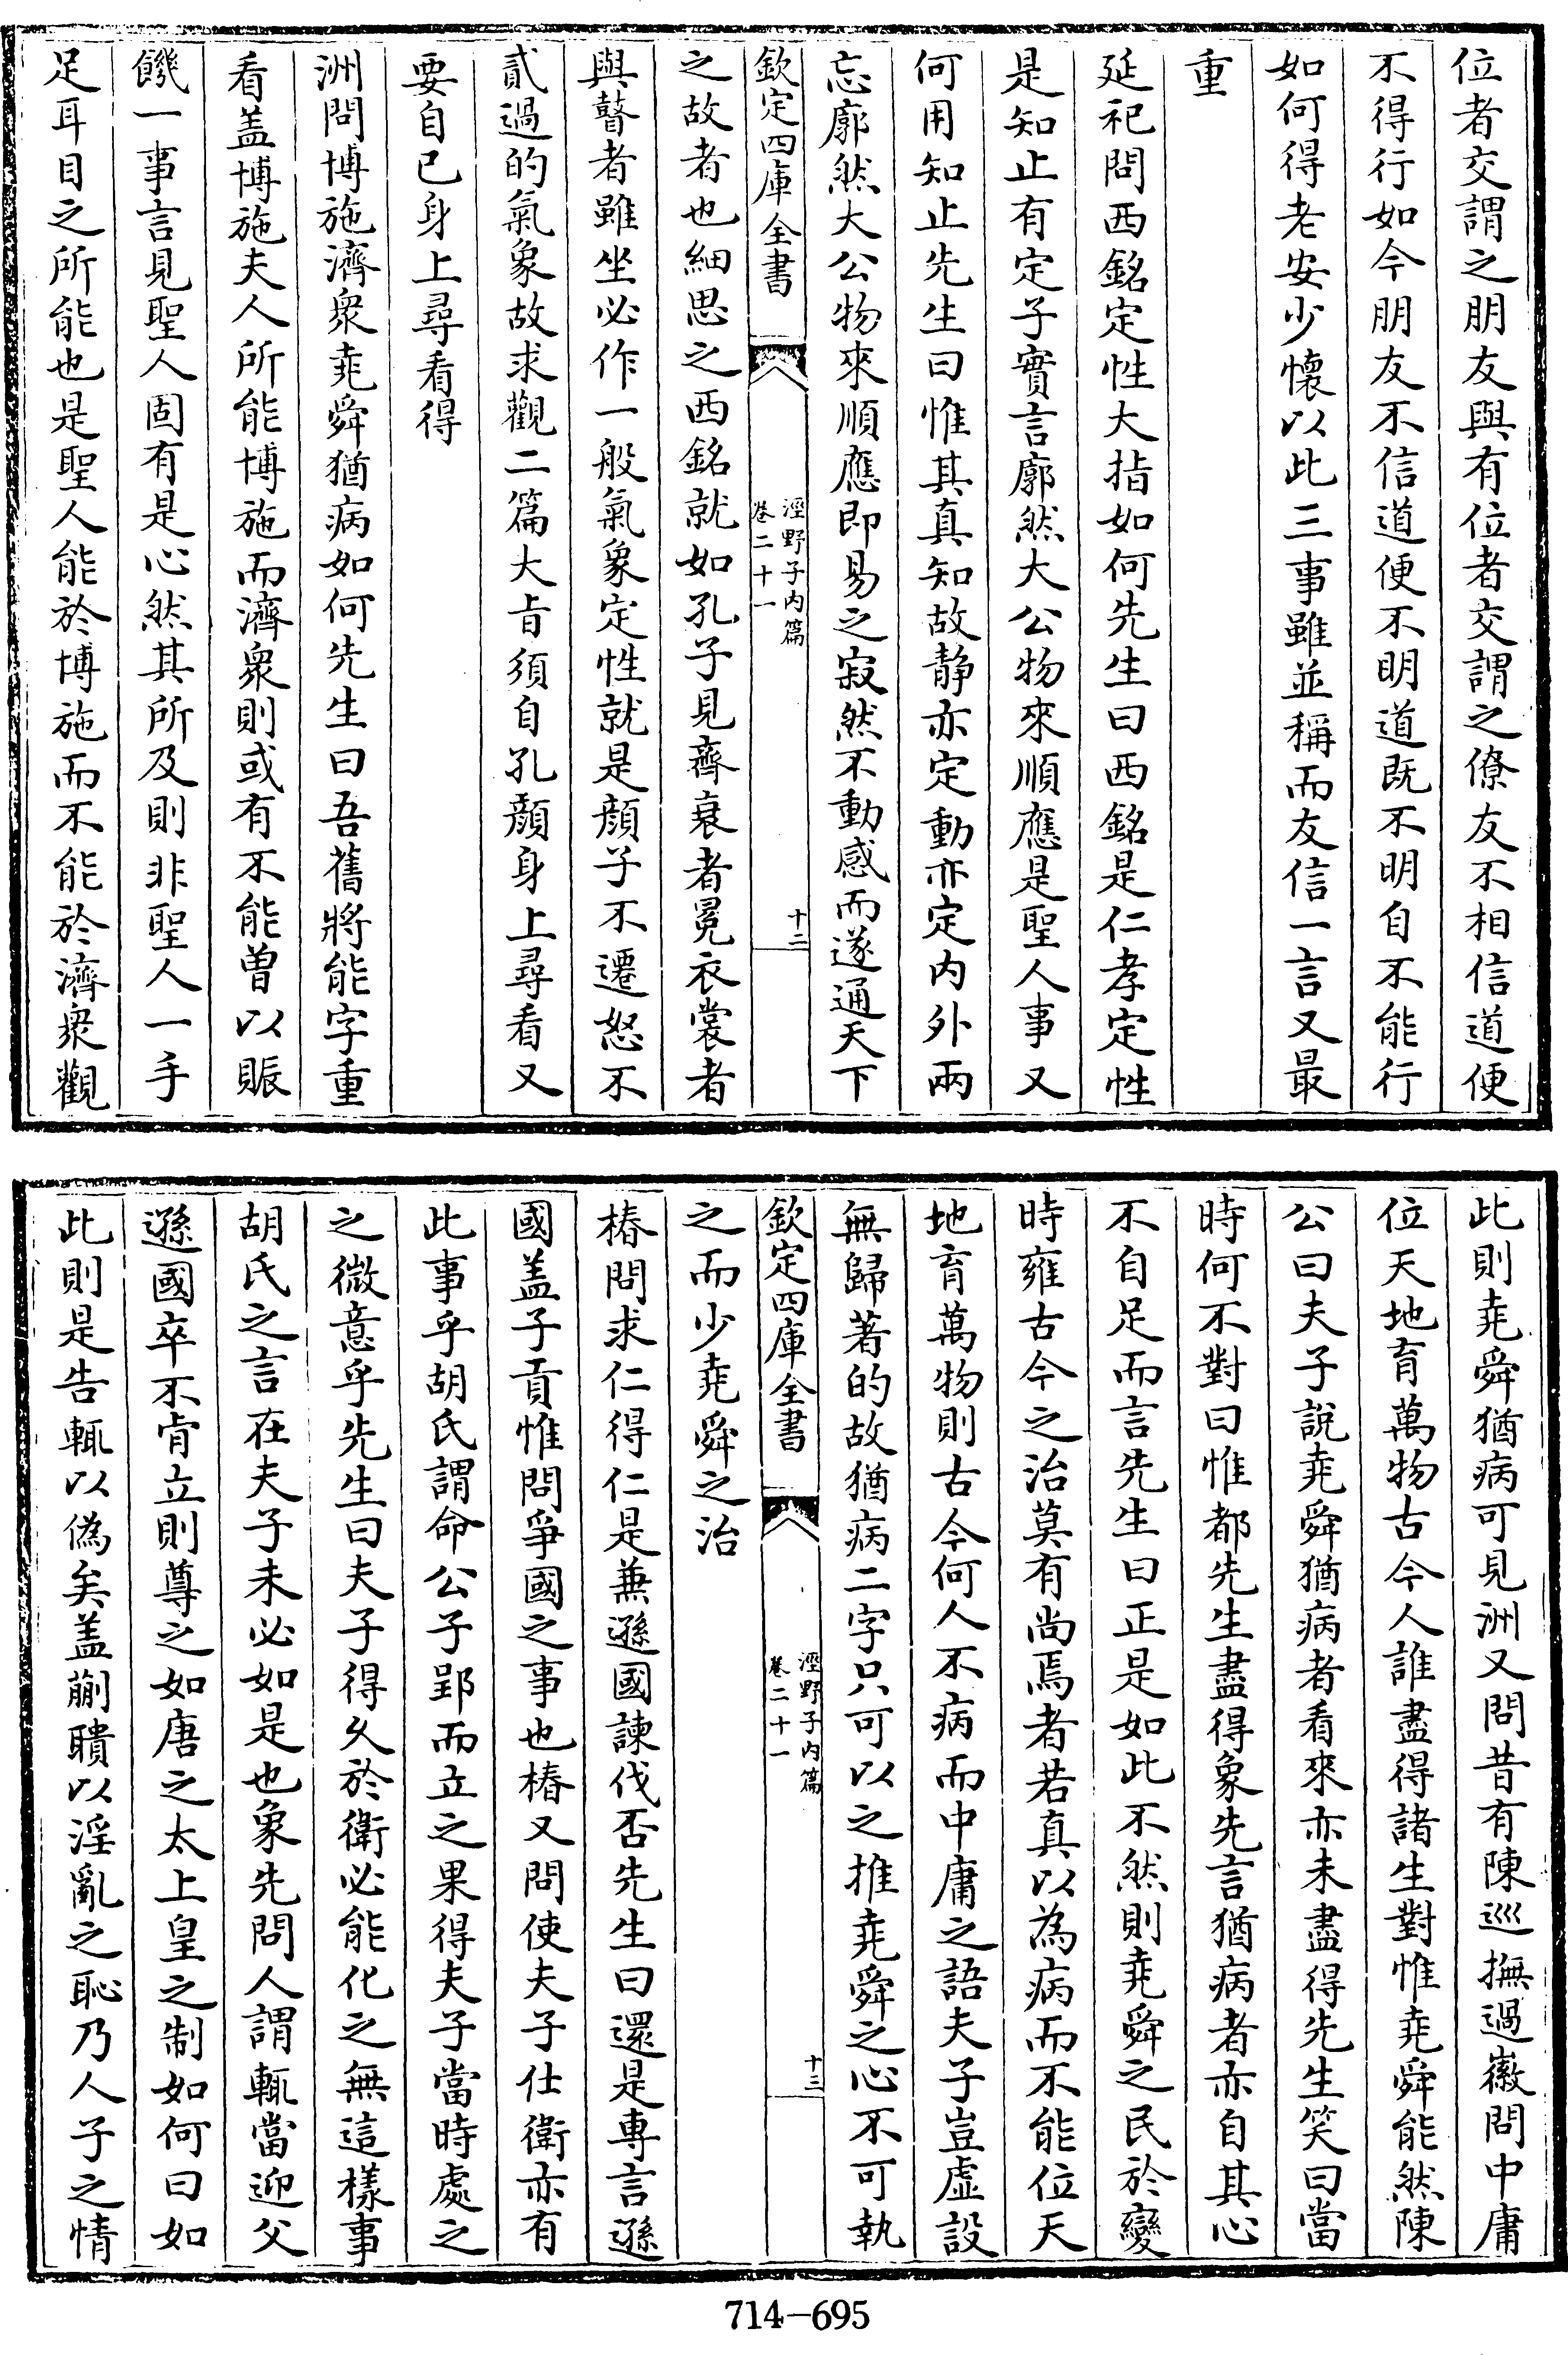 位者交謂之朋友與有位者交謂之僚友不相信道便
不得行如今朋友不信道便不明道既不明自不能行
如何得老安少懷以此三事雖並稱而友信一言又最
重
延祀問西銘定性大指如何先生曰西銘是仁孝定性
是知止有定子實言廓然大公物來順應是聖人事又
何用知止先生曰惟其真知故静亦定動亦定内外兩
忘廓然大公物來順應即易之寂然不動感而遂通天下
欽定四庫全書
涇野子内篇
卷二十一
十二
之故者也細思之西銘就如孔子見齊衰者冕衣裳者
與瞽者雖坐必作一般氣象定性就是顔子不遷怒不
貳過的氣象故求觀二篇大㫖須自孔顔身上尋看又
要自已身上尋看得
洲問博施濟衆堯舜猶病如何先生曰吾舊將能字重
看盖博施夫人所能博施而濟衆則或有不能曽以賑
饑一事言見聖人固有是心然其所及則非聖人一手
足耳目之所能也是聖人能於博施而不能於濟衆觀
此則堯舜猶病可見洲又問昔有陳廵撫過徽問中庸
位天地育萬物古今人誰盡得諸生對惟堯舜能然陳
公曰夫子說堯舜猶病者看來亦未盡得先生笑曰當
時何不對曰惟都先生盡得象先言猶病者亦自其心
不自足而言先生曰正是如此不然則堯舜之民於變
時雍古今之治莫有尚焉者若真以為病而不能位天
地育萬物則古今何人不病而中庸之語夫子豈虚設
無歸著的故猶病二字只可以之推堯舜之心不可執
欽定四庫全書
涇野子内篇
卷二十一
十三
之而少堯舜之治
椿問求仁得仁是兼遜國諫伐否先生曰還是專言遜
國盖子貢惟問爭國之事也椿又問使夫子仕衛亦有
此事乎胡氏謂命公子郢而立之果得夫子當時處之
之微意乎先生曰夫子得乆於衛必能化之無這樣事
胡氏之言在夫子未必如是也象先問人謂輒當迎父
遜國卒不肯立則尊之如唐之太上皇之制如何曰如
此則是告輒以偽矣盖蒯聵以淫亂之恥乃人子之情
714-695